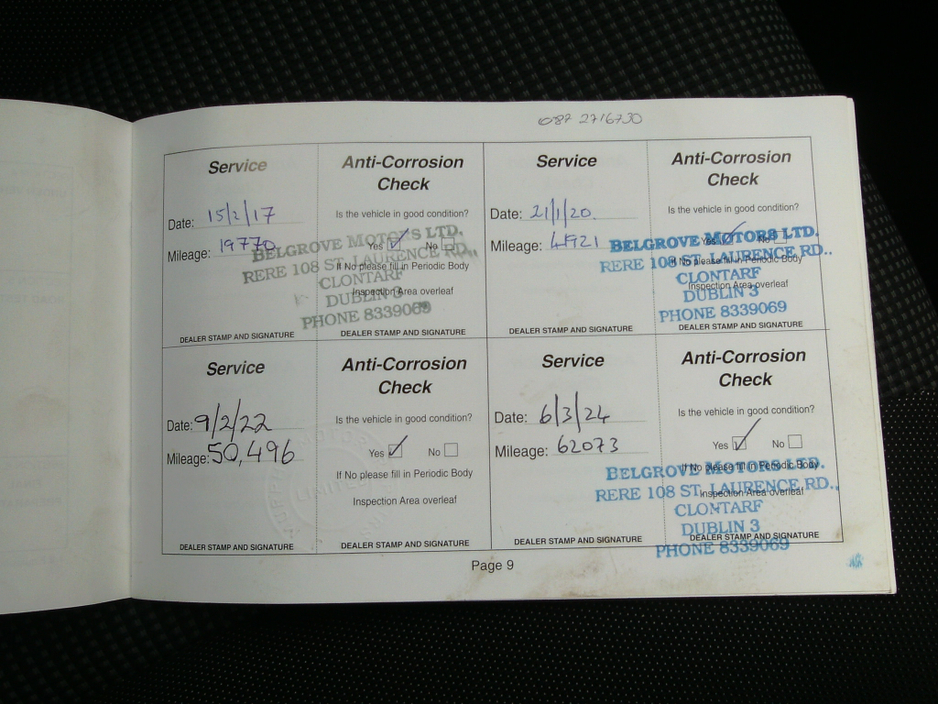 087 2716730
Service
Anti-Corrosion
Check
Date: 15/2/17
Is the vehicle in good condition?
Mileage: 19770
Yes No
If No please fill in Periodic Body
Inspection Area overleaf
BELGROVE MOTORS LTD.
RERE 108 ST. LAURENCE RD.,
CLONTARF
DUBLIN 3
PHONE 8339069
DEALER STAMP AND SIGNATURE
DEALER STAMP AND SIGNATURE
Service
Anti-Corrosion
Check
Date: 21/1/20.
Is the vehicle in good condition?
Mileage:
Yes No
If No please fill in Periodic Body
Inspection Area overleaf
BELGROVE MOTORS LTD.
RERE 108 ST. LAURENCE RD.,
CLONTARF
DUBLIN 3
PHONE 8339069
DEALER STAMP AND SIGNATURE
DEALER STAMP AND SIGNATURE
Service
Anti-Corrosion
Check
Date: 9/2/22
Is the vehicle in good condition?
Mileage: 50,496
Yes No
If No please fill in Periodic Body
Inspection Area overleaf
DEALER STAMP AND SIGNATURE
DEALER STAMP AND SIGNATURE
Service
Anti-Corrosion
Check
Date: 6/3/24
Is the vehicle in good condition?
Mileage: 62073
Yes No
If No please fill in Periodic Body
Inspection Area overleaf
BELGROVE MOTORS LTD.
RERE 108 ST. LAURENCE RD.,
CLONTARF
DUBLIN 3
PHONE 8339069
DEALER STAMP AND SIGNATURE
DEALER STAMP AND SIGNATURE
Page 9